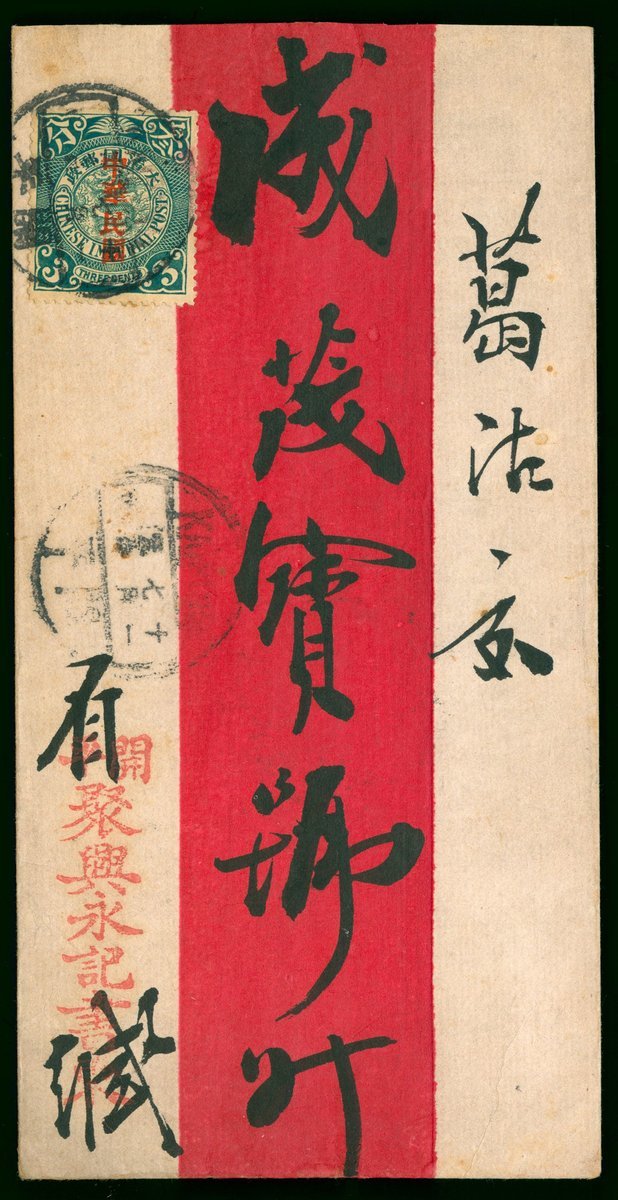 葛沽
成茂寶號
緘
開平
聚興永記書柬
分叁
大清郵政
中華民國
CHINESE IMPERIAL POST
3 THREE CENTS 3